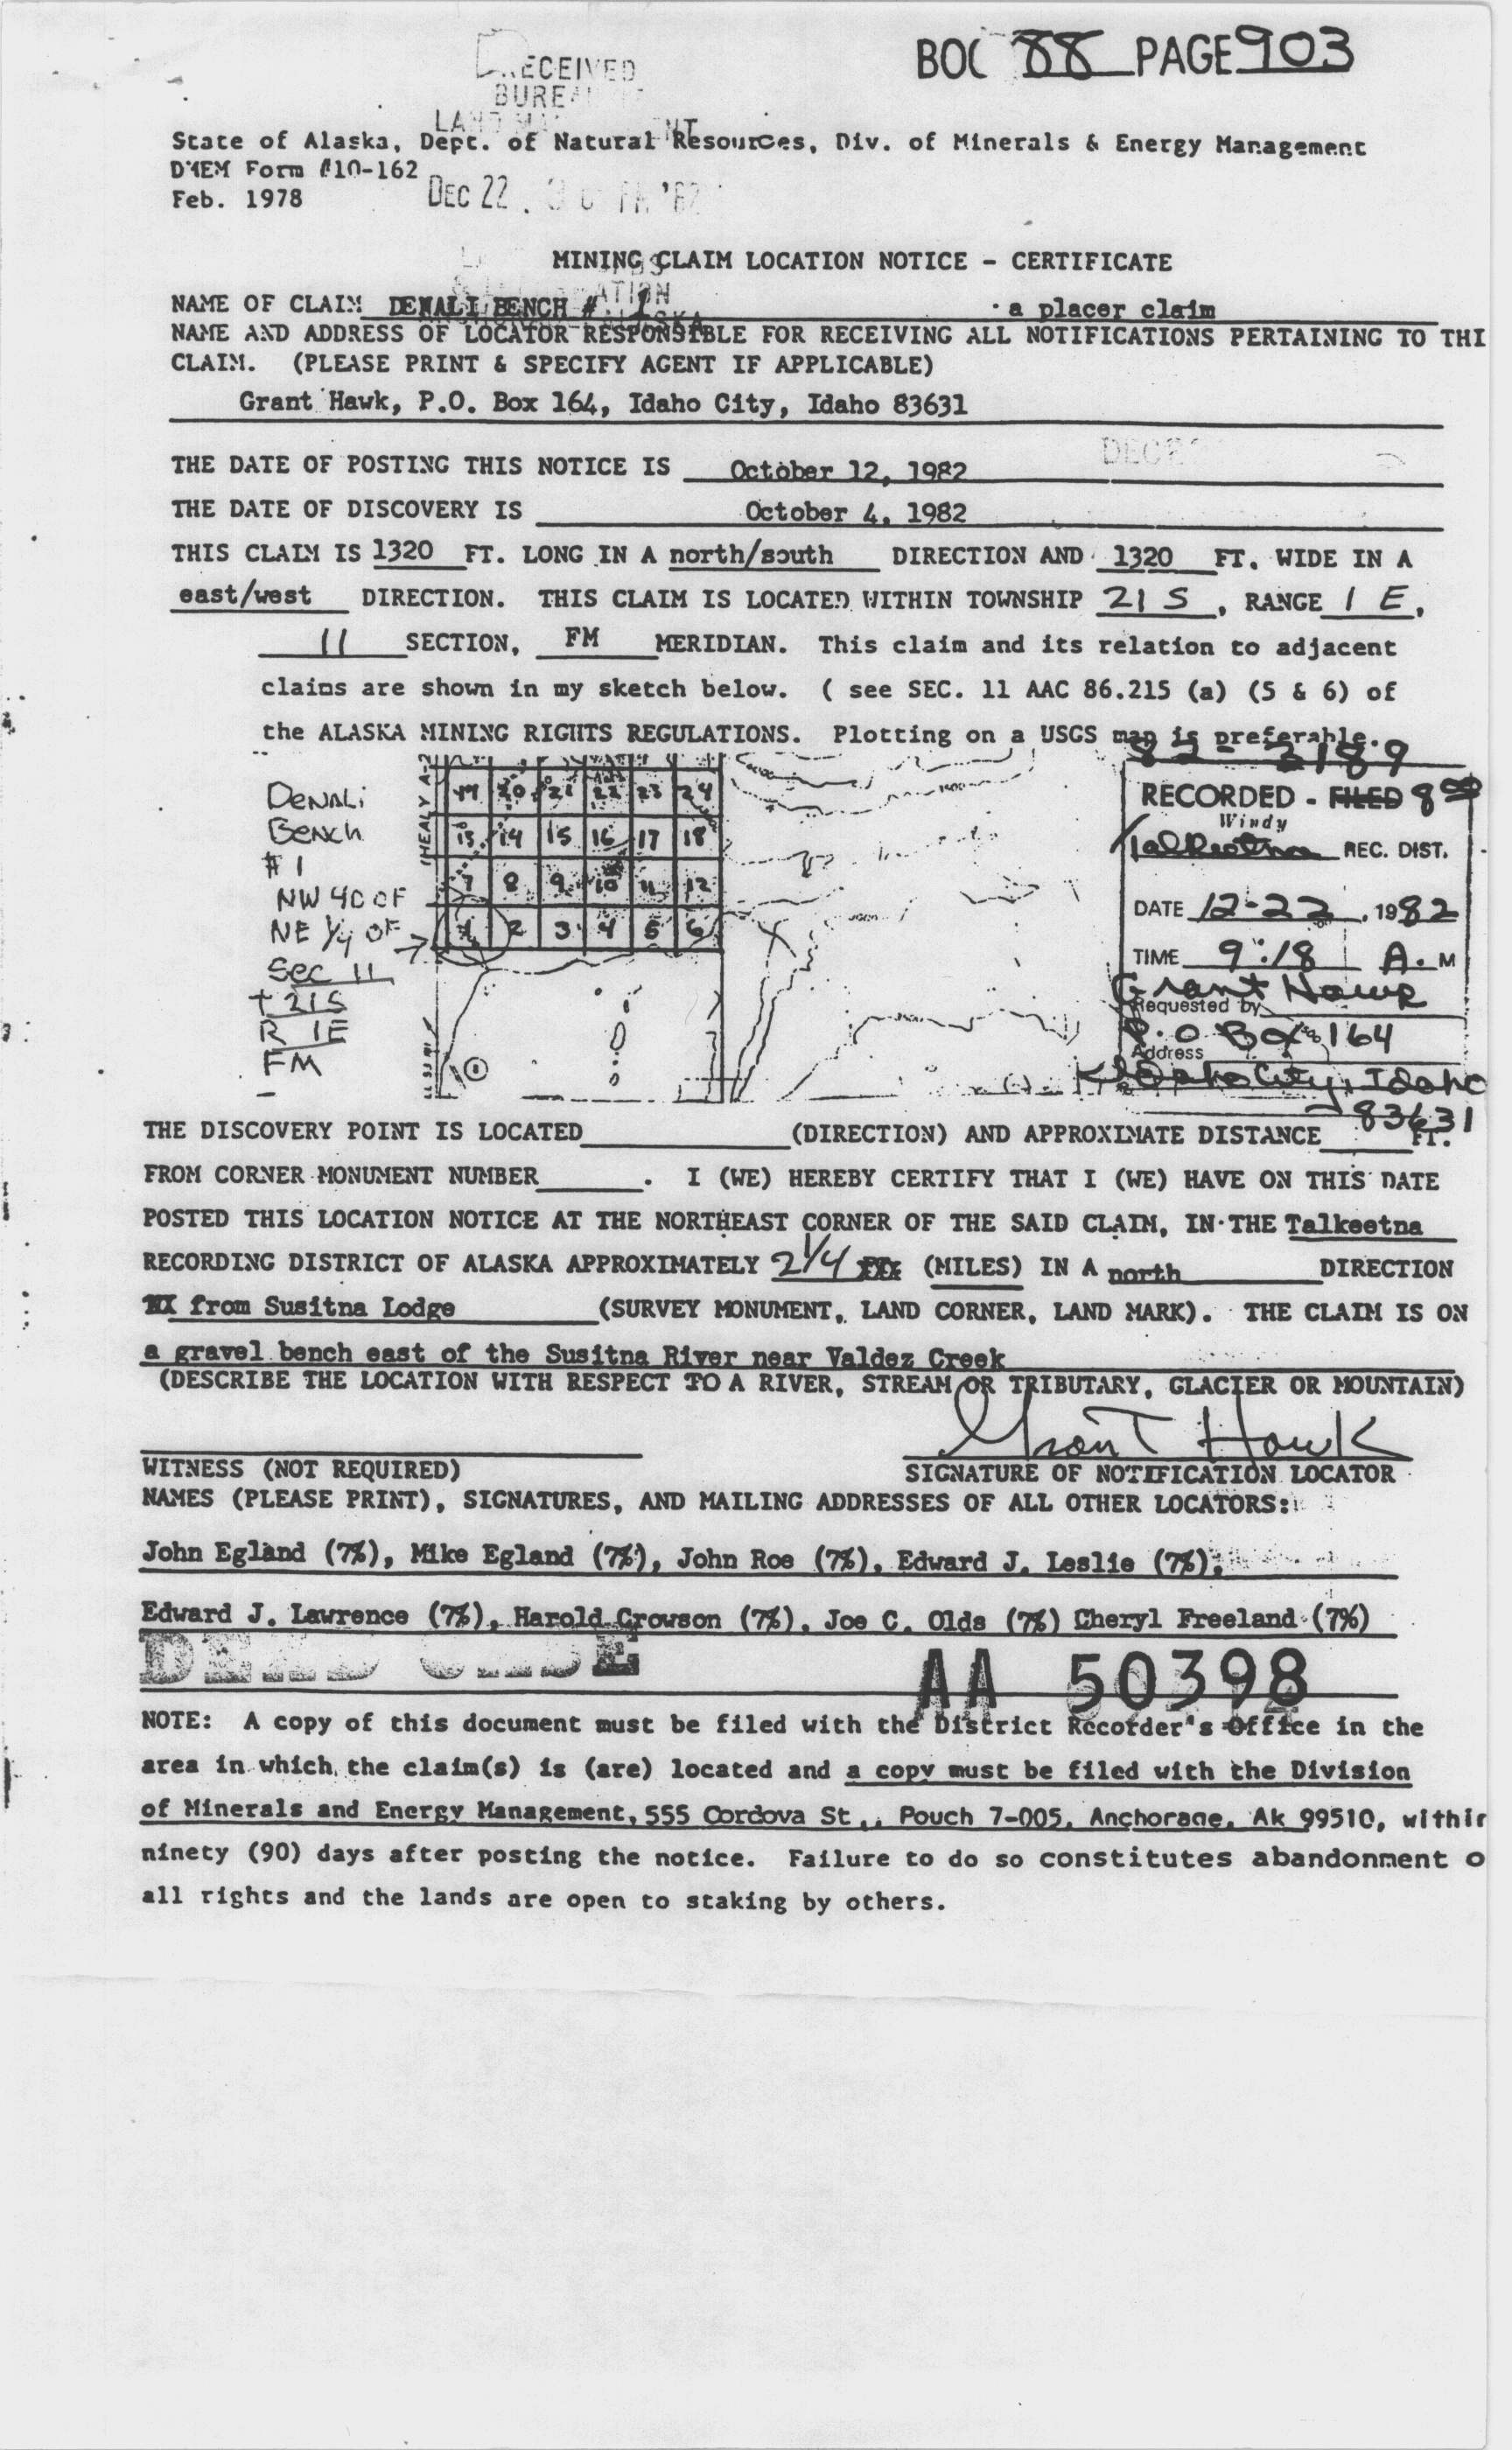 BOO 88 PAGE 903
RECEIVED
BUREAU
LAND
State of Alaska, Dept. of Natural Resources, Div. of Minerals & Energy Management
DMEM Form #10-162
Feb. 1978
DEC 22
MINING CLAIM LOCATION NOTICE - CERTIFICATE
NAME OF CLAIM DENALI BENCH # 1 a placer claim
NAME AND ADDRESS OF LOCATOR RESPONSIBLE FOR RECEIVING ALL NOTIFICATIONS PERTAINING TO THI
CLAIM. (PLEASE PRINT & SPECIFY AGENT IF APPLICABLE)
Grant Hawk, P.O. Box 164, Idaho City, Idaho 83631
THE DATE OF POSTING THIS NOTICE IS October 12, 1982
THE DATE OF DISCOVERY IS October 4, 1982
THIS CLAIM IS 1320 FT. LONG IN A north/south DIRECTION AND 1320 FT. WIDE IN A
east/west DIRECTION. THIS CLAIM IS LOCATED WITHIN TOWNSHIP 21 S, RANGE 1 E,
11 SECTION, FM MERIDIAN. This claim and its relation to adjacent
claims are shown in my sketch below. ( see SEC. 11 AAC 86.215 (a) (5 & 6) of
the ALASKA MINING RIGHTS REGULATIONS. Plotting on a USGS map is preferable.
Denali
Bench
#1
NW 40 OF
NE 1/4 OF
Sec 11
T 21S
R 1E
FM
(HEALY A-2
19 20 21 22 23 24
13 14 15 16 17 18
7 8 9 10 11 12
1 2 3 4 5 6
82-3189
RECORDED - FILED 8 00
Windy
Talkeetna REC. DIST.
DATE 12-22, 1982
TIME 9:18 A. M
Grant Hawk
Requested by
P.O Box 164
Address
Idaho City, Idaho
83631
THE DISCOVERY POINT IS LOCATED (DIRECTION) AND APPROXIMATE DISTANCE FT.
FROM CORNER MONUMENT NUMBER . I (WE) HEREBY CERTIFY THAT I (WE) HAVE ON THIS DATE
POSTED THIS LOCATION NOTICE AT THE NORTHEAST CORNER OF THE SAID CLAIM, IN THE Talkeetna
RECORDING DISTRICT OF ALASKA APPROXIMATELY 2 1/4 (MILES) IN A north DIRECTION
from Susitna Lodge (SURVEY MONUMENT, LAND CORNER, LAND MARK). THE CLAIM IS ON
a gravel bench east of the Susitna River near Valdez Creek
(DESCRIBE THE LOCATION WITH RESPECT TO A RIVER, STREAM OR TRIBUTARY, GLACIER OR MOUNTAIN)
Grant Hawk
WITNESS (NOT REQUIRED) SIGNATURE OF NOTIFICATION LOCATOR
NAMES (PLEASE PRINT), SIGNATURES, AND MAILING ADDRESSES OF ALL OTHER LOCATORS:
John Egland (7%), Mike Egland (7%), John Roe (7%), Edward J. Leslie (7%),
Edward J. Lawrence (7%), Harold Crowson (7%), Joe C. Olds (7%) Cheryl Freeland (7%)
DEAD CASE
AA 50398
NOTE: A copy of this document must be filed with the District Recorder's Office in the
area in which the claim(s) is (are) located and a copy must be filed with the Division
of Minerals and Energy Management, 555 Cordova St., Pouch 7-005, Anchorage, Ak 99510, within
ninety (90) days after posting the notice. Failure to do so constitutes abandonment o
all rights and the lands are open to staking by others.